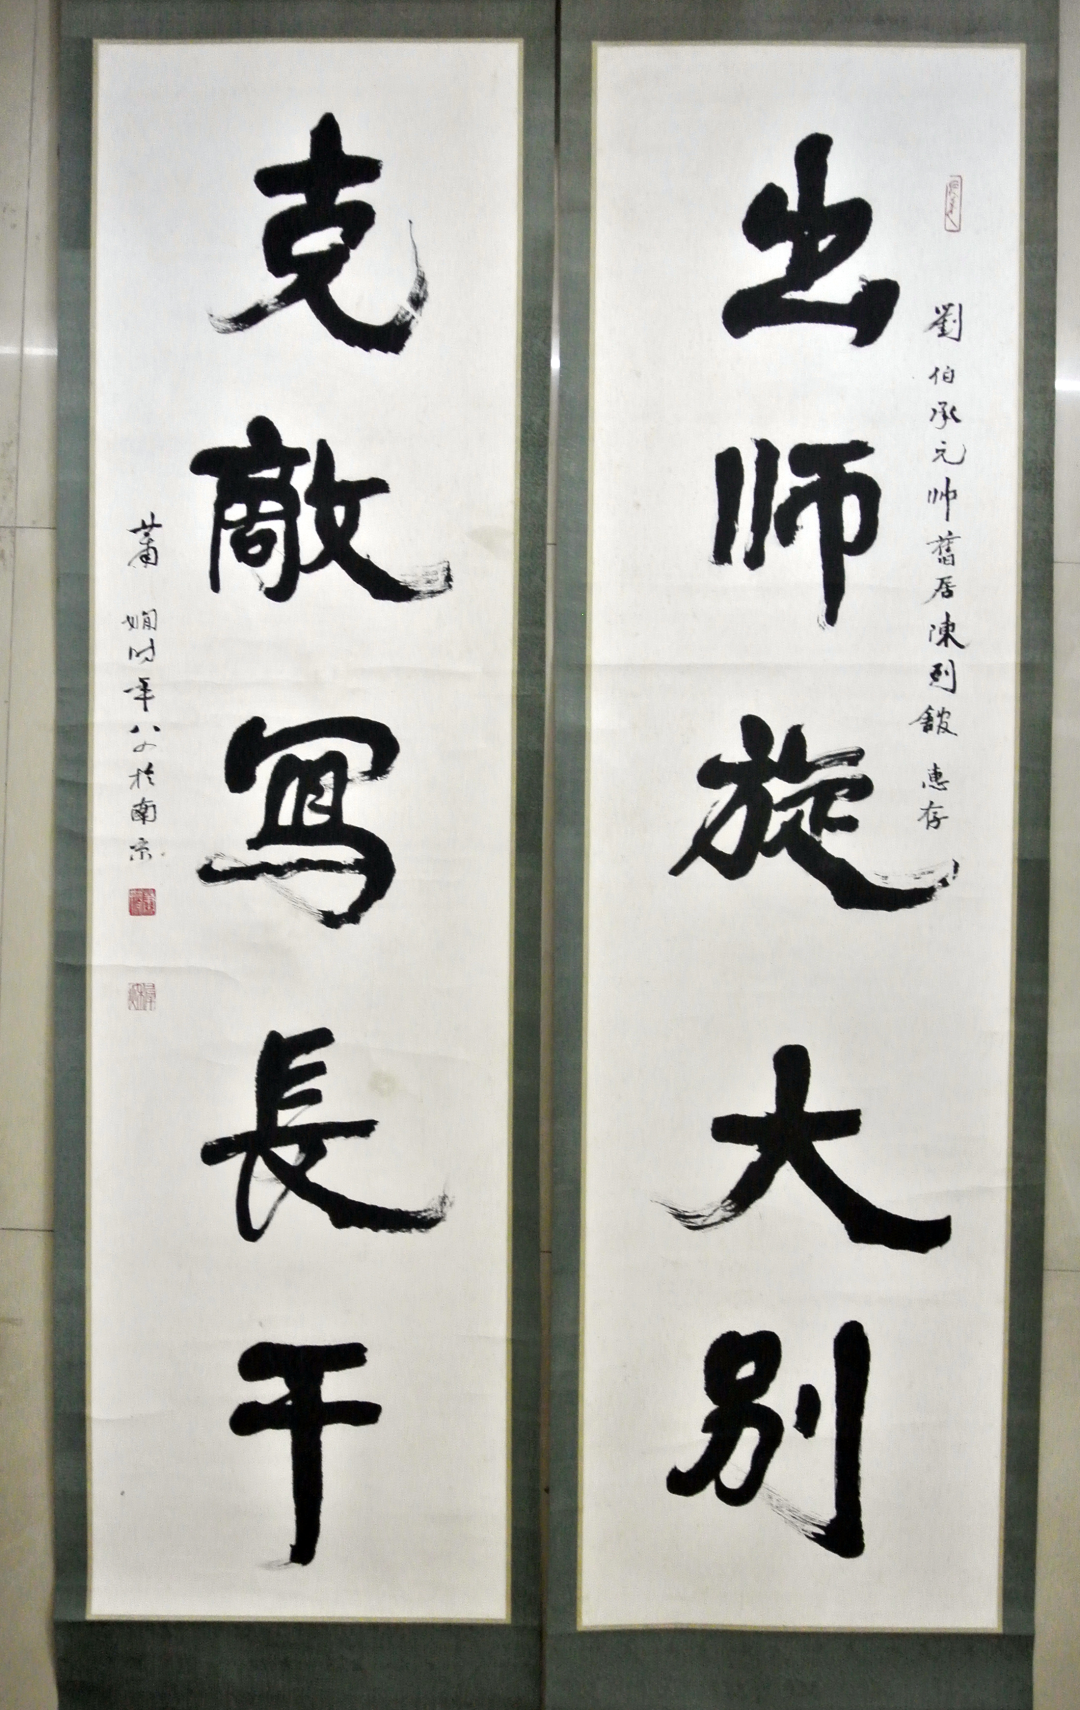 劉伯承元帅舊居陳列館 惠存
出师旋大别
克敵寫長干
蕭娴时年八四於南京